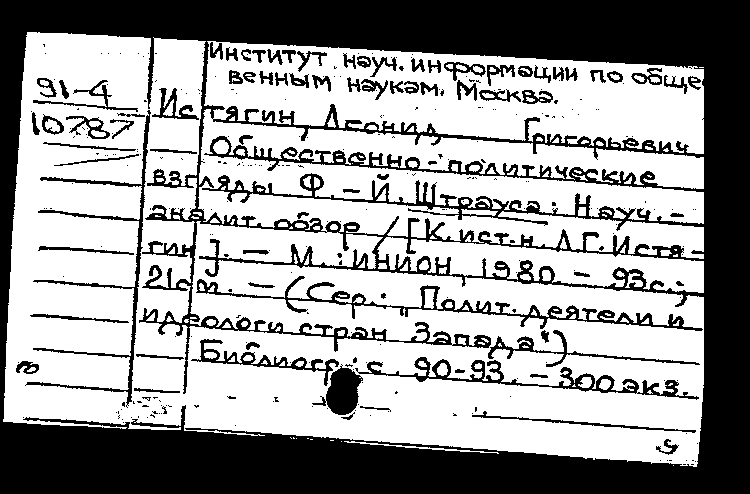 Институт науч. информации по общест-
венным наукам. Москва.
91-4
10787
Истягин, Леонид Григорьевич
Общественно-политические
взгляды Ф.-Й. Штрауса: Науч.-
аналит. обзор / [К.ист.н. Л.Г. Истя-
гин]. – М.: ИНИОН, 1980. – 93с.;
21см. – (Сер.: "Полит. деятели и
идеологи стран Запада").
Библиогр.: с. 90-93. – 300 экз.